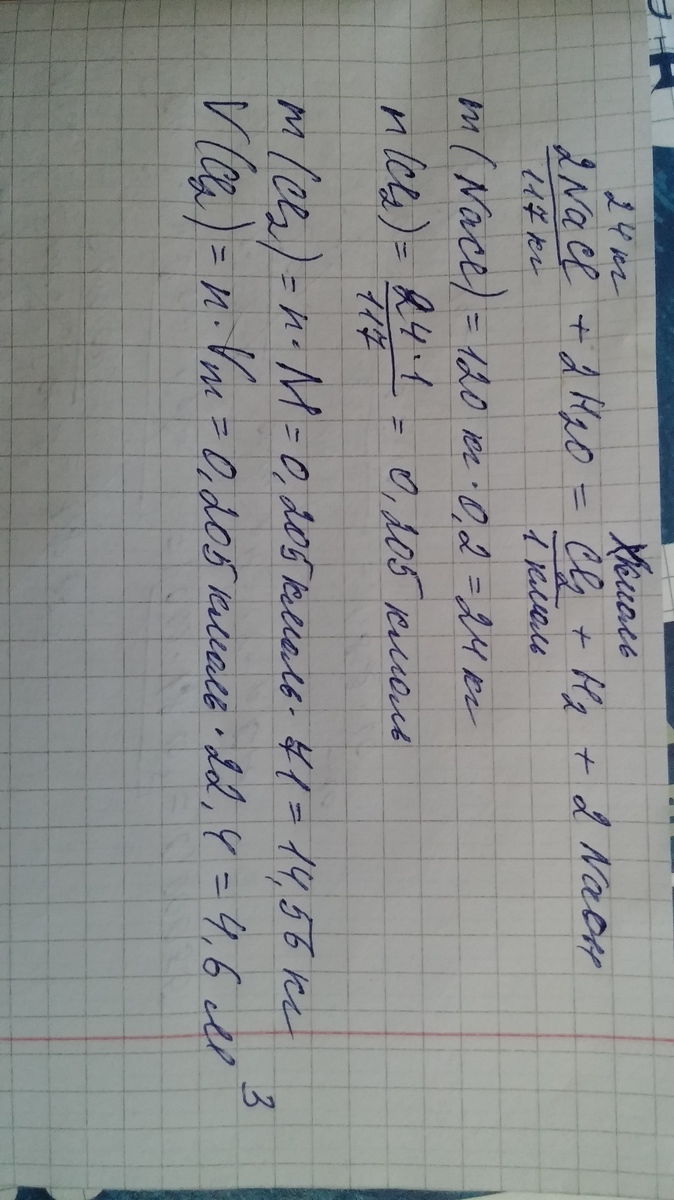 24 кг Xкмоль
2NaCl + 2H2O = Cl2 + H2 + 2NaOH
117 кг 1 кмоль
m(NaCl) = 120 кг · 0,2 = 24 кг
n(Cl2) = 24·1/117 = 0,205 кмоль
m(Cl2) = n·M = 0,205 кмоль · 71 = 14,56 кг
V(Cl2) = n·Vm = 0,205 кмоль · 22,4 = 4,6 м³